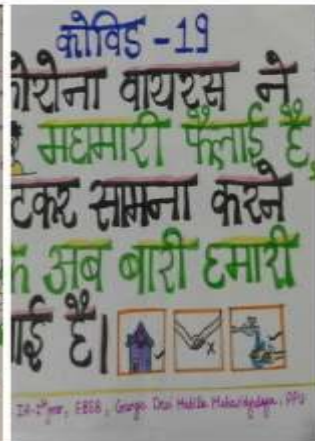 कोविड -19
कोरोना वायरस ने
महामारी फैलाई है,
डटकर सामना करने
अब बारी हमारी
आई है।
Ganga Devi Mahila Mahavidyalaya, PPU